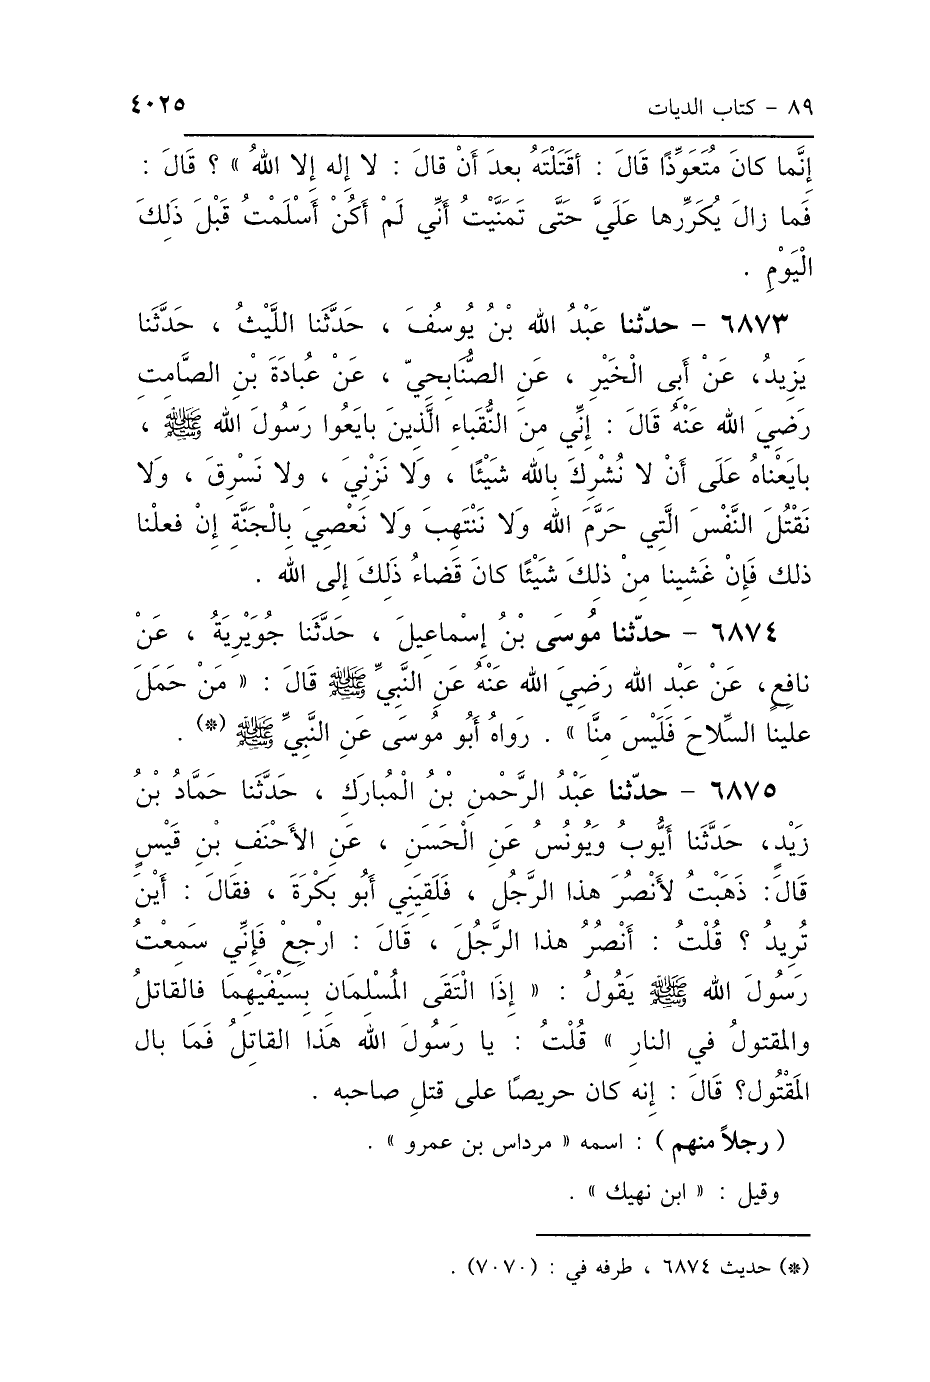 ٨٩ - كتاب الديات ٤٠٢٥
إنَّما كانَ مُتَعَوِّذًا قَالَ : أقَتَلْتَهُ بعدَ أنْ قالَ : لا إله إلا اللهُ » ؟ قَالَ :
فَما زالَ يُكَرِّرها عَلَيَّ حَتَّى تَمَنَّيْتُ أنِّي لَمْ أَكُنْ أَسْلَمْتُ قَبْلَ ذَلِكَ
الْيَوْمِ .
٦٨٧٣ - حدّثنا عَبْدُ الله بْنُ يُوسُفَ ، حَدَّثَنا اللَّيْثُ ، حَدَّثَنا
يَزِيدُ، عَنْ أَبِى الْخَيْرِ ، عَنِ الصُّنَابِحِيّ ، عَنْ عُبادَةَ بْنِ الصَّامِتِ
رَضِيَ الله عَنْهُ قَالَ : إنِّي منَ النُّقَباءِ الَّذِينَ بايَعُوا رَسُولَ الله ﷺ ،
بايَعْناهُ عَلَى أنْ لا نُشْرِكَ بِالله شَيْئًا ، وَلَا نَزْنِيَ ، ولا نَسْرِقَ ، وَلَا
نَقْتُلَ النَّفْسَ الَّتِي حَرَّمَ الله وَلَا نَنْتَهِبَ وَلَا نَعْصِيَ بِالْجَنَّةِ إنْ فعلْنا
ذلك فَإنْ غَشِينا مِنْ ذلكَ شَيْئًا كانَ قَضاءُ ذَلِكَ إلى الله .
٦٨٧٤ - حدّثنا مُوسَى بْنُ إسْماعيلَ ، حَدَّثَنا جُوَيْرِيَةُ ، عَنْ
نافِعٍ، عَنْ عَبْدِ الله رَضِيَ الله عَنْهُ عَنِ النَّبِيِّ ﷺ قَالَ : « مَنْ حَمَلَ
علينا السِّلاحَ فَلَيْسَ منَّا » . رَواهُ أَبُو مُوسَى عَنِ النَّبِيِّ ﷺ (*) .
٦٨٧٥ - حدّثنا عَبْدُ الرَّحْمنِ بنُ الْمُبارَكِ ، حَدَّثَنا حَمَّادُ بْنُ
زَيْدٍ، حَدَّثَنا أَيُّوبُ وَيُونُسُ عَنِ الْحَسَنِ ، عَنِ الأحْنَفِ بْنِ قَيْسٍ
قَالَ: ذَهَبْتُ لأنْصُرَ هذا الرَّجُلَ ، فَلَقِيَنِي أَبُو بَكْرَةَ ، فقَالَ : أَيْنَ
تُرِيدُ ؟ قُلْتُ : أَنْصُرُ هذا الرَّجُلَ ، قَالَ : ارْجِعْ فَإنِّي سَمِعْتُ
رَسُولَ الله ﷺ يَقُولُ : « إذَا الْتَقَى الْمُسْلِمَانِ بِسَيْفَيْهِمَا فالقاتلُ
والمقتولُ في النارِ » قُلْتُ : يا رَسُولَ الله هَذَا القاتلُ فَمَا بال
المَقْتُولِ؟ قَالَ : إنه كان حريصًا على قتلِ صاحبه .
( رجلاً منهم ) : اسمه « مرداس بن عمرو » .
وقيل : « ابن نهيك » .
(*) حديث ٦٨٧٤ ، طرفه في : (٧٠٧٠) .